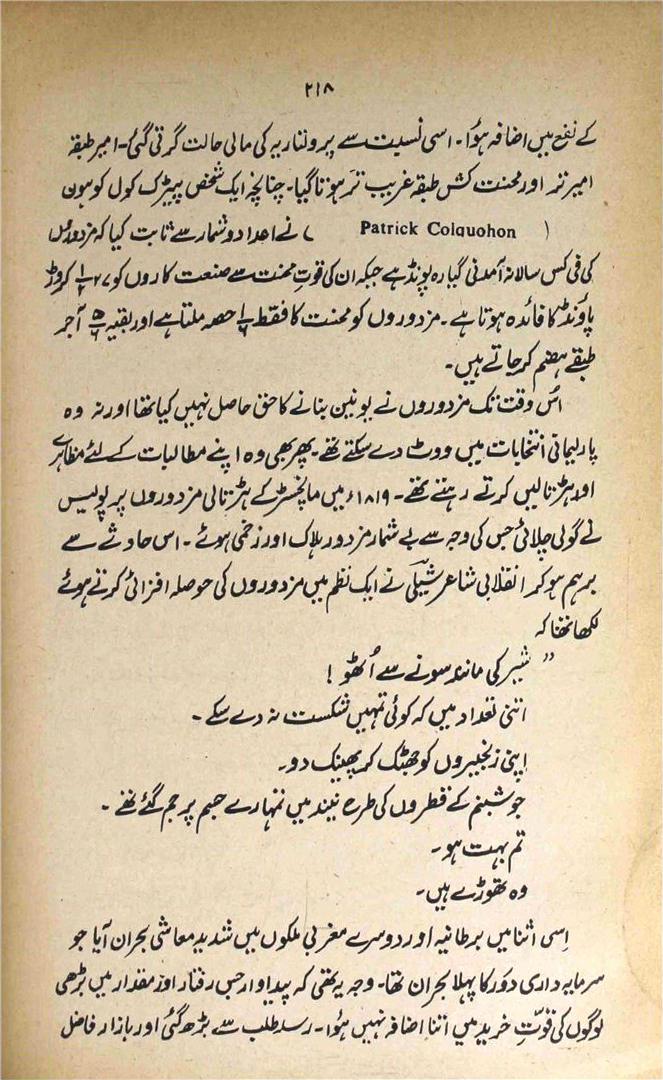 ۲۱۸
کے نفع میں اضافہ ہوُا۔ اسی نسبت سے پرولتاریہ کی مالی حالت گرتی گئی۔ امیر طبقہ
امیر تر اور محنت کش طبقہ غریب تر ہوتا گیا۔ چنانچہ ایک شخص پیٹرک کول کوہون
( Patrick Colquohon ) نے اعداد و شمار سے ثابت کیا کہ مزدوروں
کی فی کس سالانہ آمدنی گیارہ پونڈ ہے جبکہ ان کی قوتِ محنت سے صنعت کاروں کو ۲۷ ۱/۲ کروڑ
پاؤنڈ کا فائدہ ہوتا ہے۔ مزدوروں کو محنت کا فقط ۱/۶ حصہ ملتا ہے اور بقیہ ۵/۶ آجر
طبقے ہضم کر جاتے ہیں۔
اُس وقت تک مزدوروں نے یونین بنانے کا حق حاصل نہیں کیا تھا اور نہ وہ
پارلیمانی انتخابات میں ووٹ دے سکتے تھے۔ پھر بھی وہ اپنے مطالبات کے لئے مظاہرے
اور ہڑتالیں کرتے رہتے تھے۔ ۱۸۱۹ء میں مانچسٹر کے ہڑتالی مزدوروں پر پولیس
نے گولی چلائی جس کی وجہ سے بے شمار مزدور ہلاک اور زخمی ہوئے۔ اس حادثے سے
برہم ہو کر انقلابی شاعر شیلی نے ایک نظم میں مزدوروں کی حوصلہ افزائی کرتے ہوئے
لکھا تھا کہ
” شیر کی مانند سونے سے اُٹھو !
اتنی تعداد میں کہ کوئی تمہیں شکست نہ دے سکے۔
اپنی زنجیروں کو جھٹک کر پھینک دو۔
جو شبنم کے قطروں کی طرح نیند میں تمہارے جسم پر جم گئے تھے۔
تم بہت ہو۔
وہ تھوڑے ہیں۔
اِسی اثنا میں برطانیہ اور دوسرے مغربی ملکوں میں شدید معاشی بحران آیا جو
سرمایہ داری دَور کا پہلا بحران تھا۔ وجہ یہ تھی کہ پیداوار جس رفتار اور مقدار میں بڑھی
لوگوں کی قوّتِ خرید میں اتنا اضافہ نہیں ہوُا۔ رسد طلب سے بڑھ گئی اور بازار فاضل